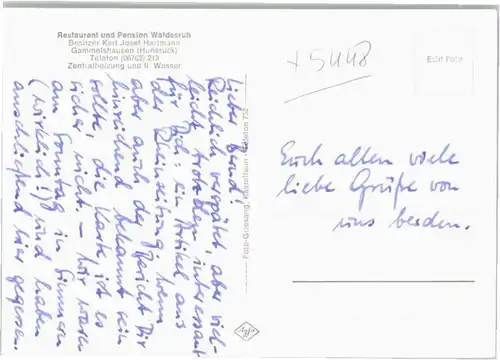 Restaurant und Pension Waldesruh
Besitzer Karl Josef Hartmann
Gammelshausen (Hunsrück)
Telefon (06762) 219
Zentralheizung und fl. Wasser
Lieber Bernd!
Reichlich verspätet, aber viel-
leicht trotzdem interessant
für Dich: ein Artikel aus
der Rheinzeitung. Wenn
aber auch der Bericht Dir
hinreichend bekannt sein
sollte, die Karte ist es
sicher nicht. – Wir waren
am Sonntag in Simmern
(wirklich!) und haben
anschließend hier gegessen.
Foto-Griesang, Kastellaun · Telefon 752
+ 5448
Echt Foto
Euch allen viele
liebe Grüße von
uns beiden.
Agfa